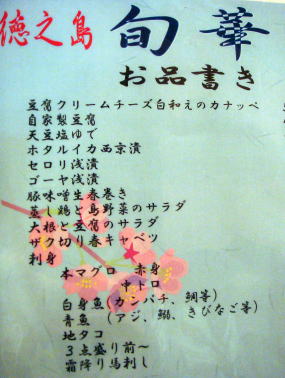 徳之島 旬華
お品書き
豆腐クリームチーズ白和えのカナッペ
自家製豆腐
天豆塩ゆで
ホタルイカ西京漬
セロリ浅漬
ゴーヤ浅漬
豚味噌生春巻き
蒸し鶏と島野菜のサラダ
大根と豆腐のサラダ
ザクっと切り春キャベツ
刺身
本マグロ 赤身
中トロ
白身魚(カンパチ、鯛等)
青魚 (アジ、鰯、きびなご等)
地タコ
3点盛り前〜
霜降り馬刺し